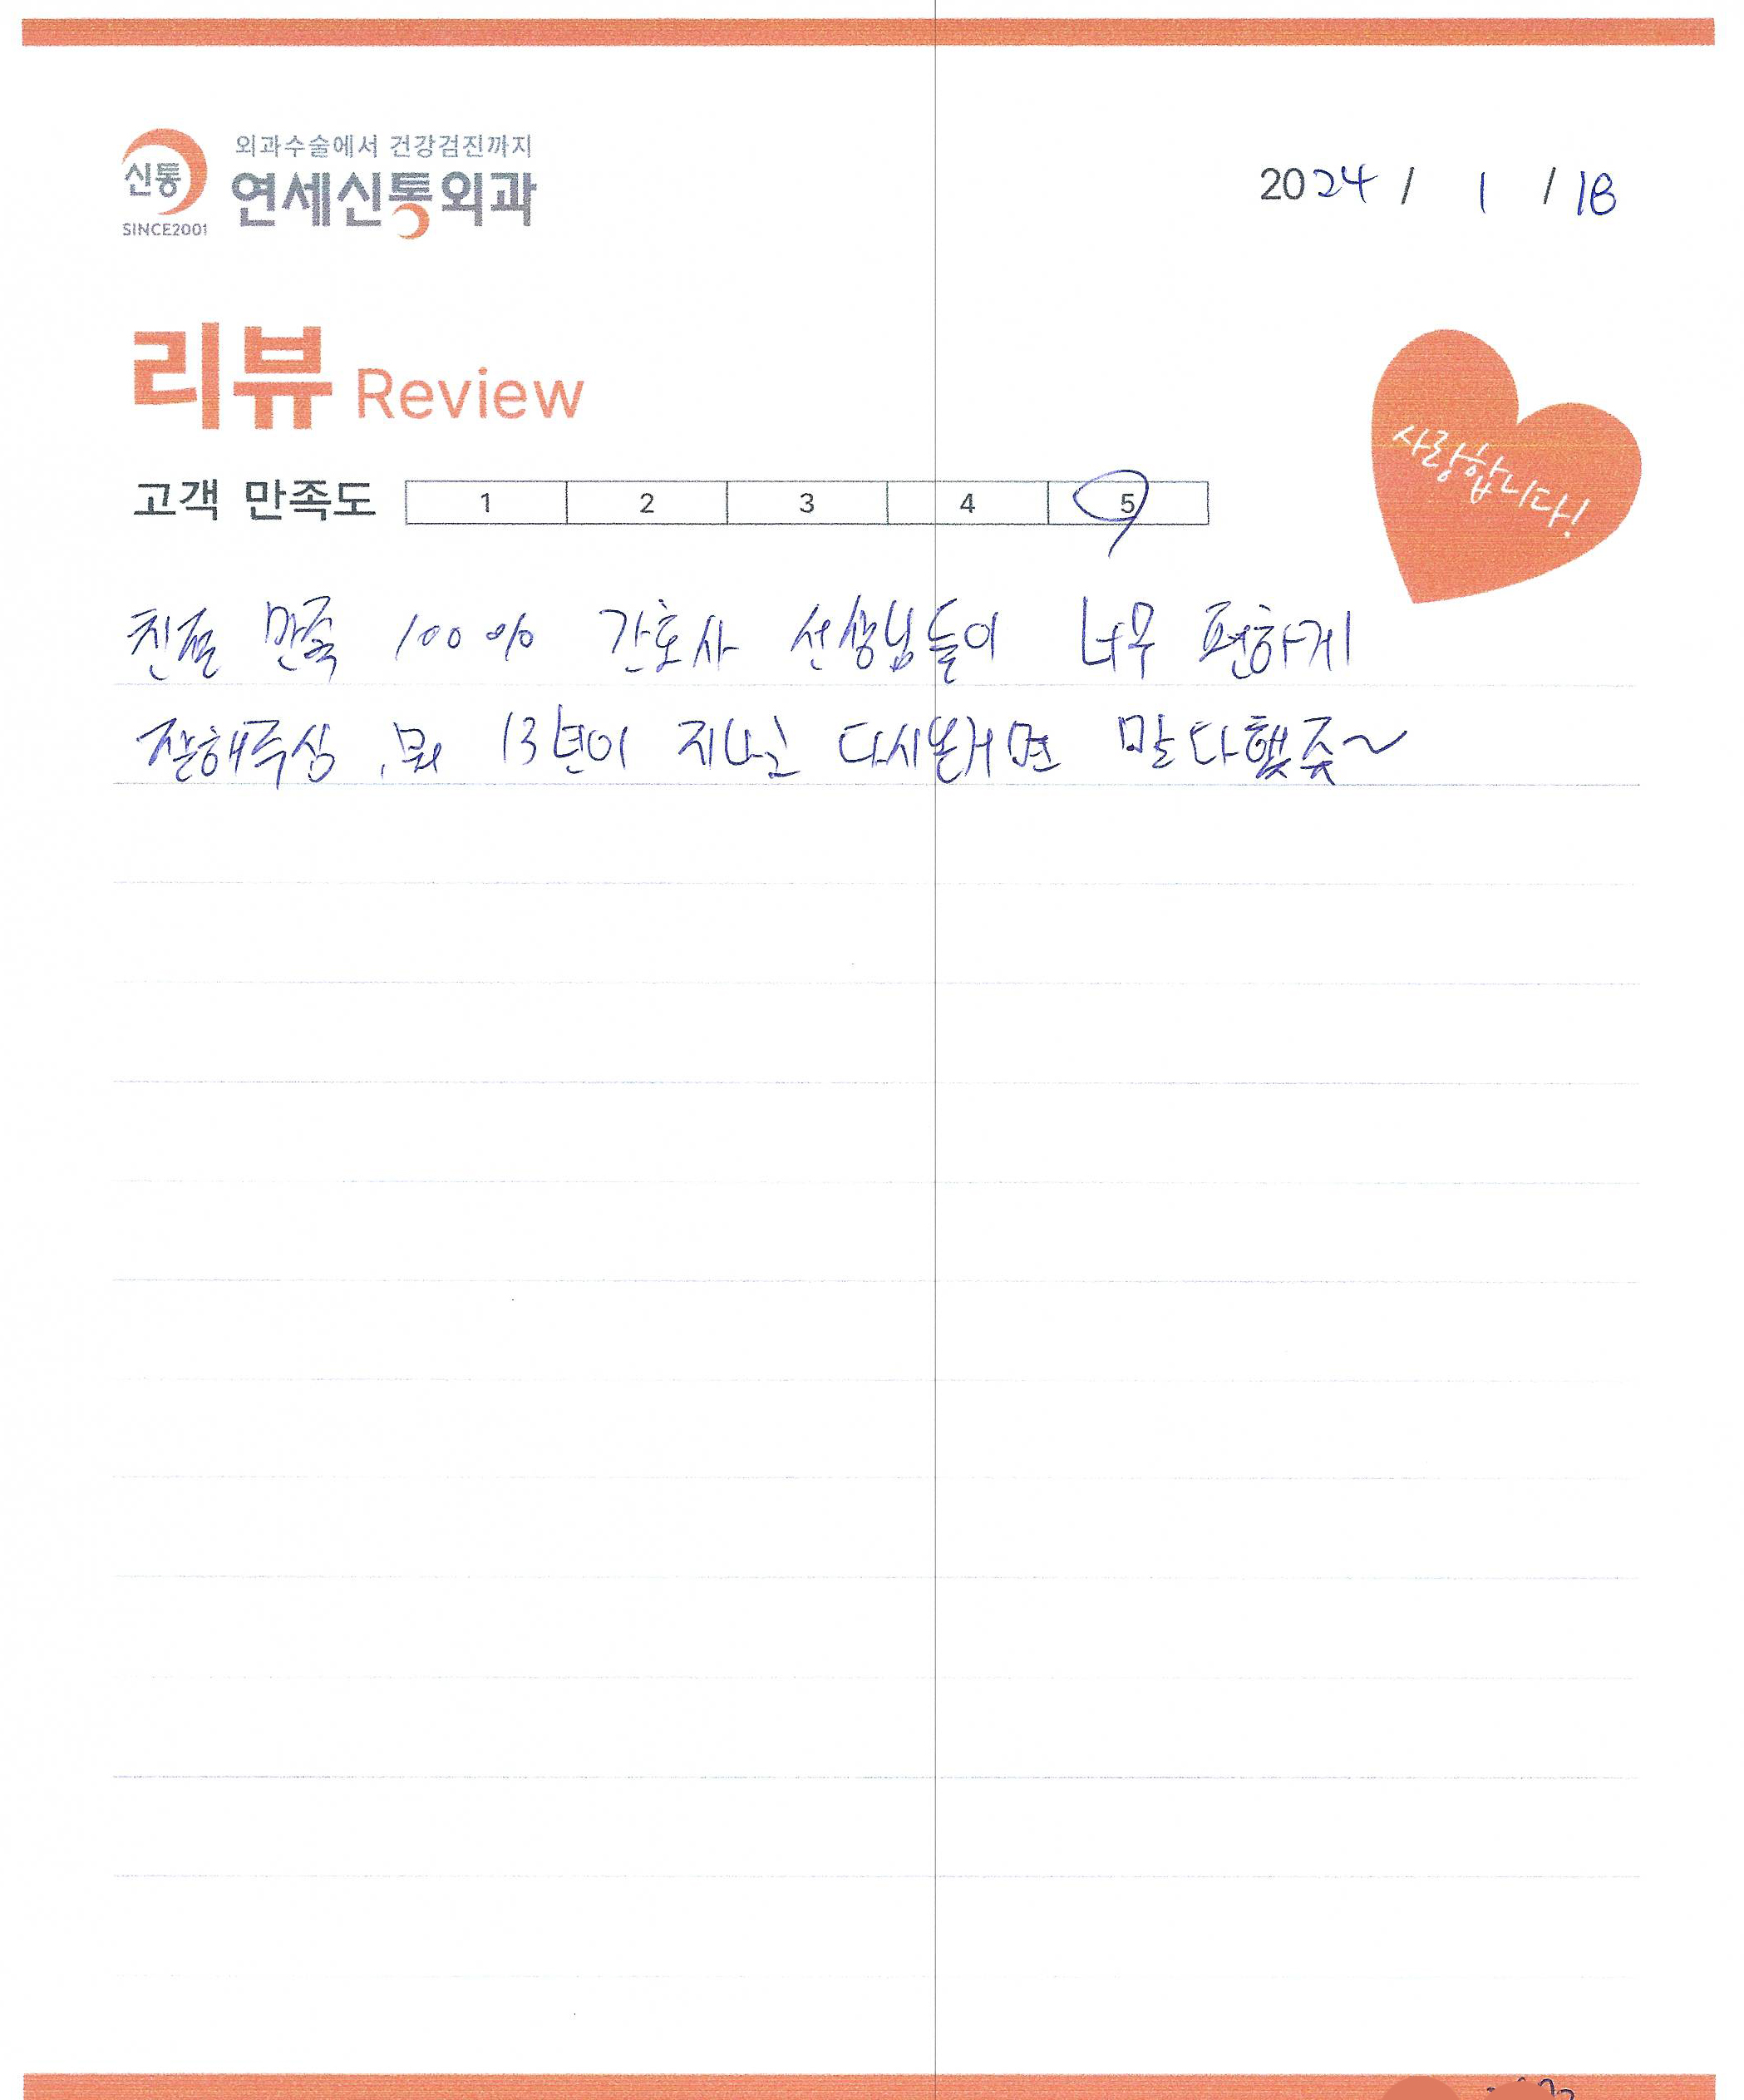 외과수술에서 건강검진까지
신통 연세신통외과
SINCE2001
2024 / 1 / 18
리뷰 Review
사랑합니다!
고객 만족도 1 2 3 4 5
친절 만족 100% 간호사 선생님들이 너무 편하게
잘해주심, 뭐 13년이 지나 다시온거면 말다했죶~